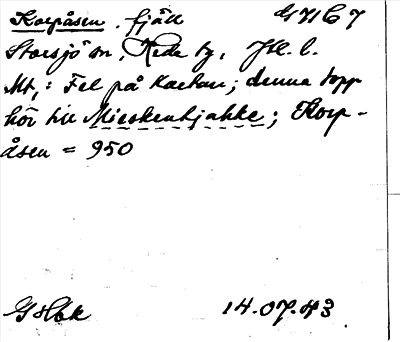 Korpåsen, fjäll G 71 C 7
Storsjö sn, Hede tg, Jtl. l.
Mt,: Fel på kartan; denna topp
hör till Mieskentjahke; Korp-
åsen = 950
GHbk 14.07.43